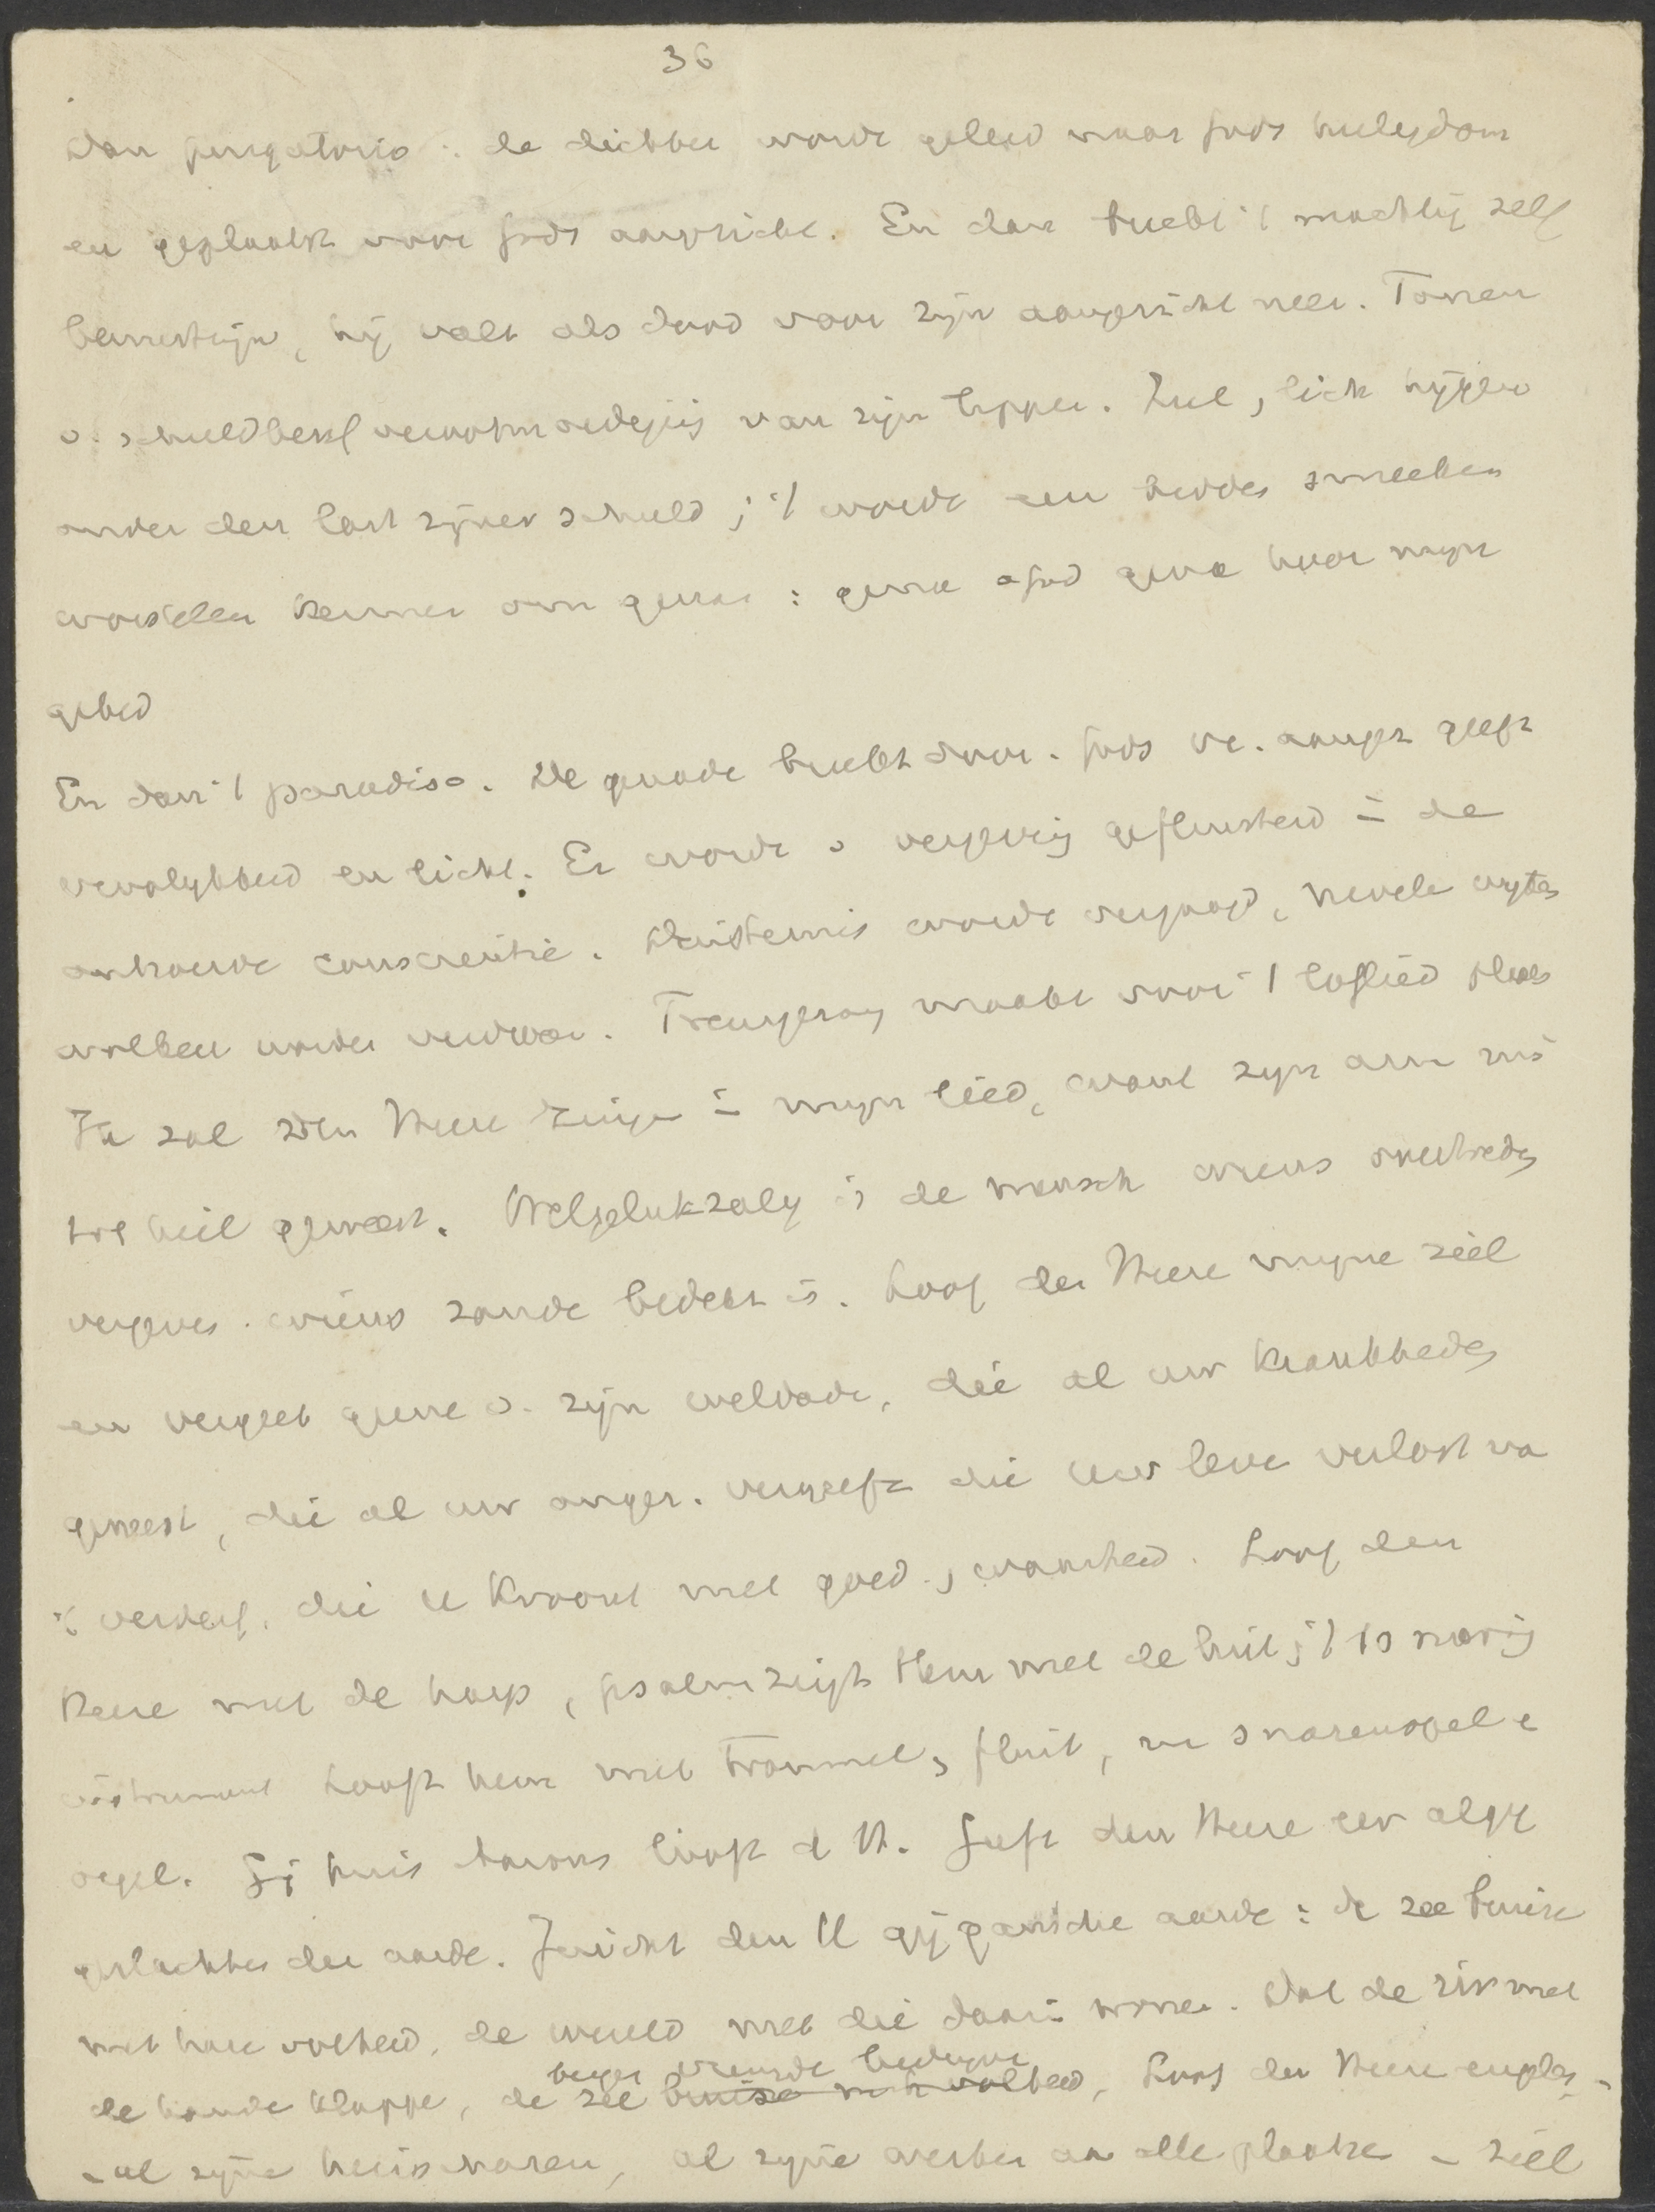 36
Dan purgatorio : de dichter wordt geleid naar Gods heiligdom
en geplaatst voor Gods aangezicht. En dan breekt 't machtig zelf
bewustzijn, hij valt als dood voor zijn aangezicht neer. Tonen
v. schuldbesef verootmoediging van zijn lippen. Ziel, licht hijgen
onder den last zijner schuld; 't wordt een bidden smeeken
worstelen kermen om gena : gena o God gena hoor mijn
gebed
En dan 't paradiso. De genade breekt door. Gods ve. aangez geeft
vroolykheid en licht. Er wordt v vergeving gefluisterd in de
ontroerde conscientie. Duisternis wordt verjaagd, nevele wyken
wolken worden verdreve. Treurzang maakt voor 't loflied plaats
Ik zal den Heere zinge in mijn lied, want zyn arm mij
tot heil geweest. Welgelukzalig is de mensch wiens overtreding
vergeven. wiens zonde bedekt is. Loof den Heere mijne ziel
en vergeet geene v. zijn weldade, die al uw krankheden
geneest, die al uw onger. vergeeft die uw leve verlost va
't verderf, die u kroont met goed., waarheid. Loof den
Heere met de harp, psalmzingt Hem met de luit, 't 10 snarig
instrument Looft hem met trommel, fluit, me snarenspel e
orgel. Gij huis Aarons looft d H. Geeft den Heere eer alge
geslachten der aarde. Juicht den H gij gansche aarde : de zee bruise
met hare volheid, de wereld met die daarin wonen. Dat de riv met
de hande klappe, de zee bruise m h volheid, Loof den Heere engelen
berge vreugde bedryve
al zijne heirscharen, al zyne werken aan alle plaatse - ziel